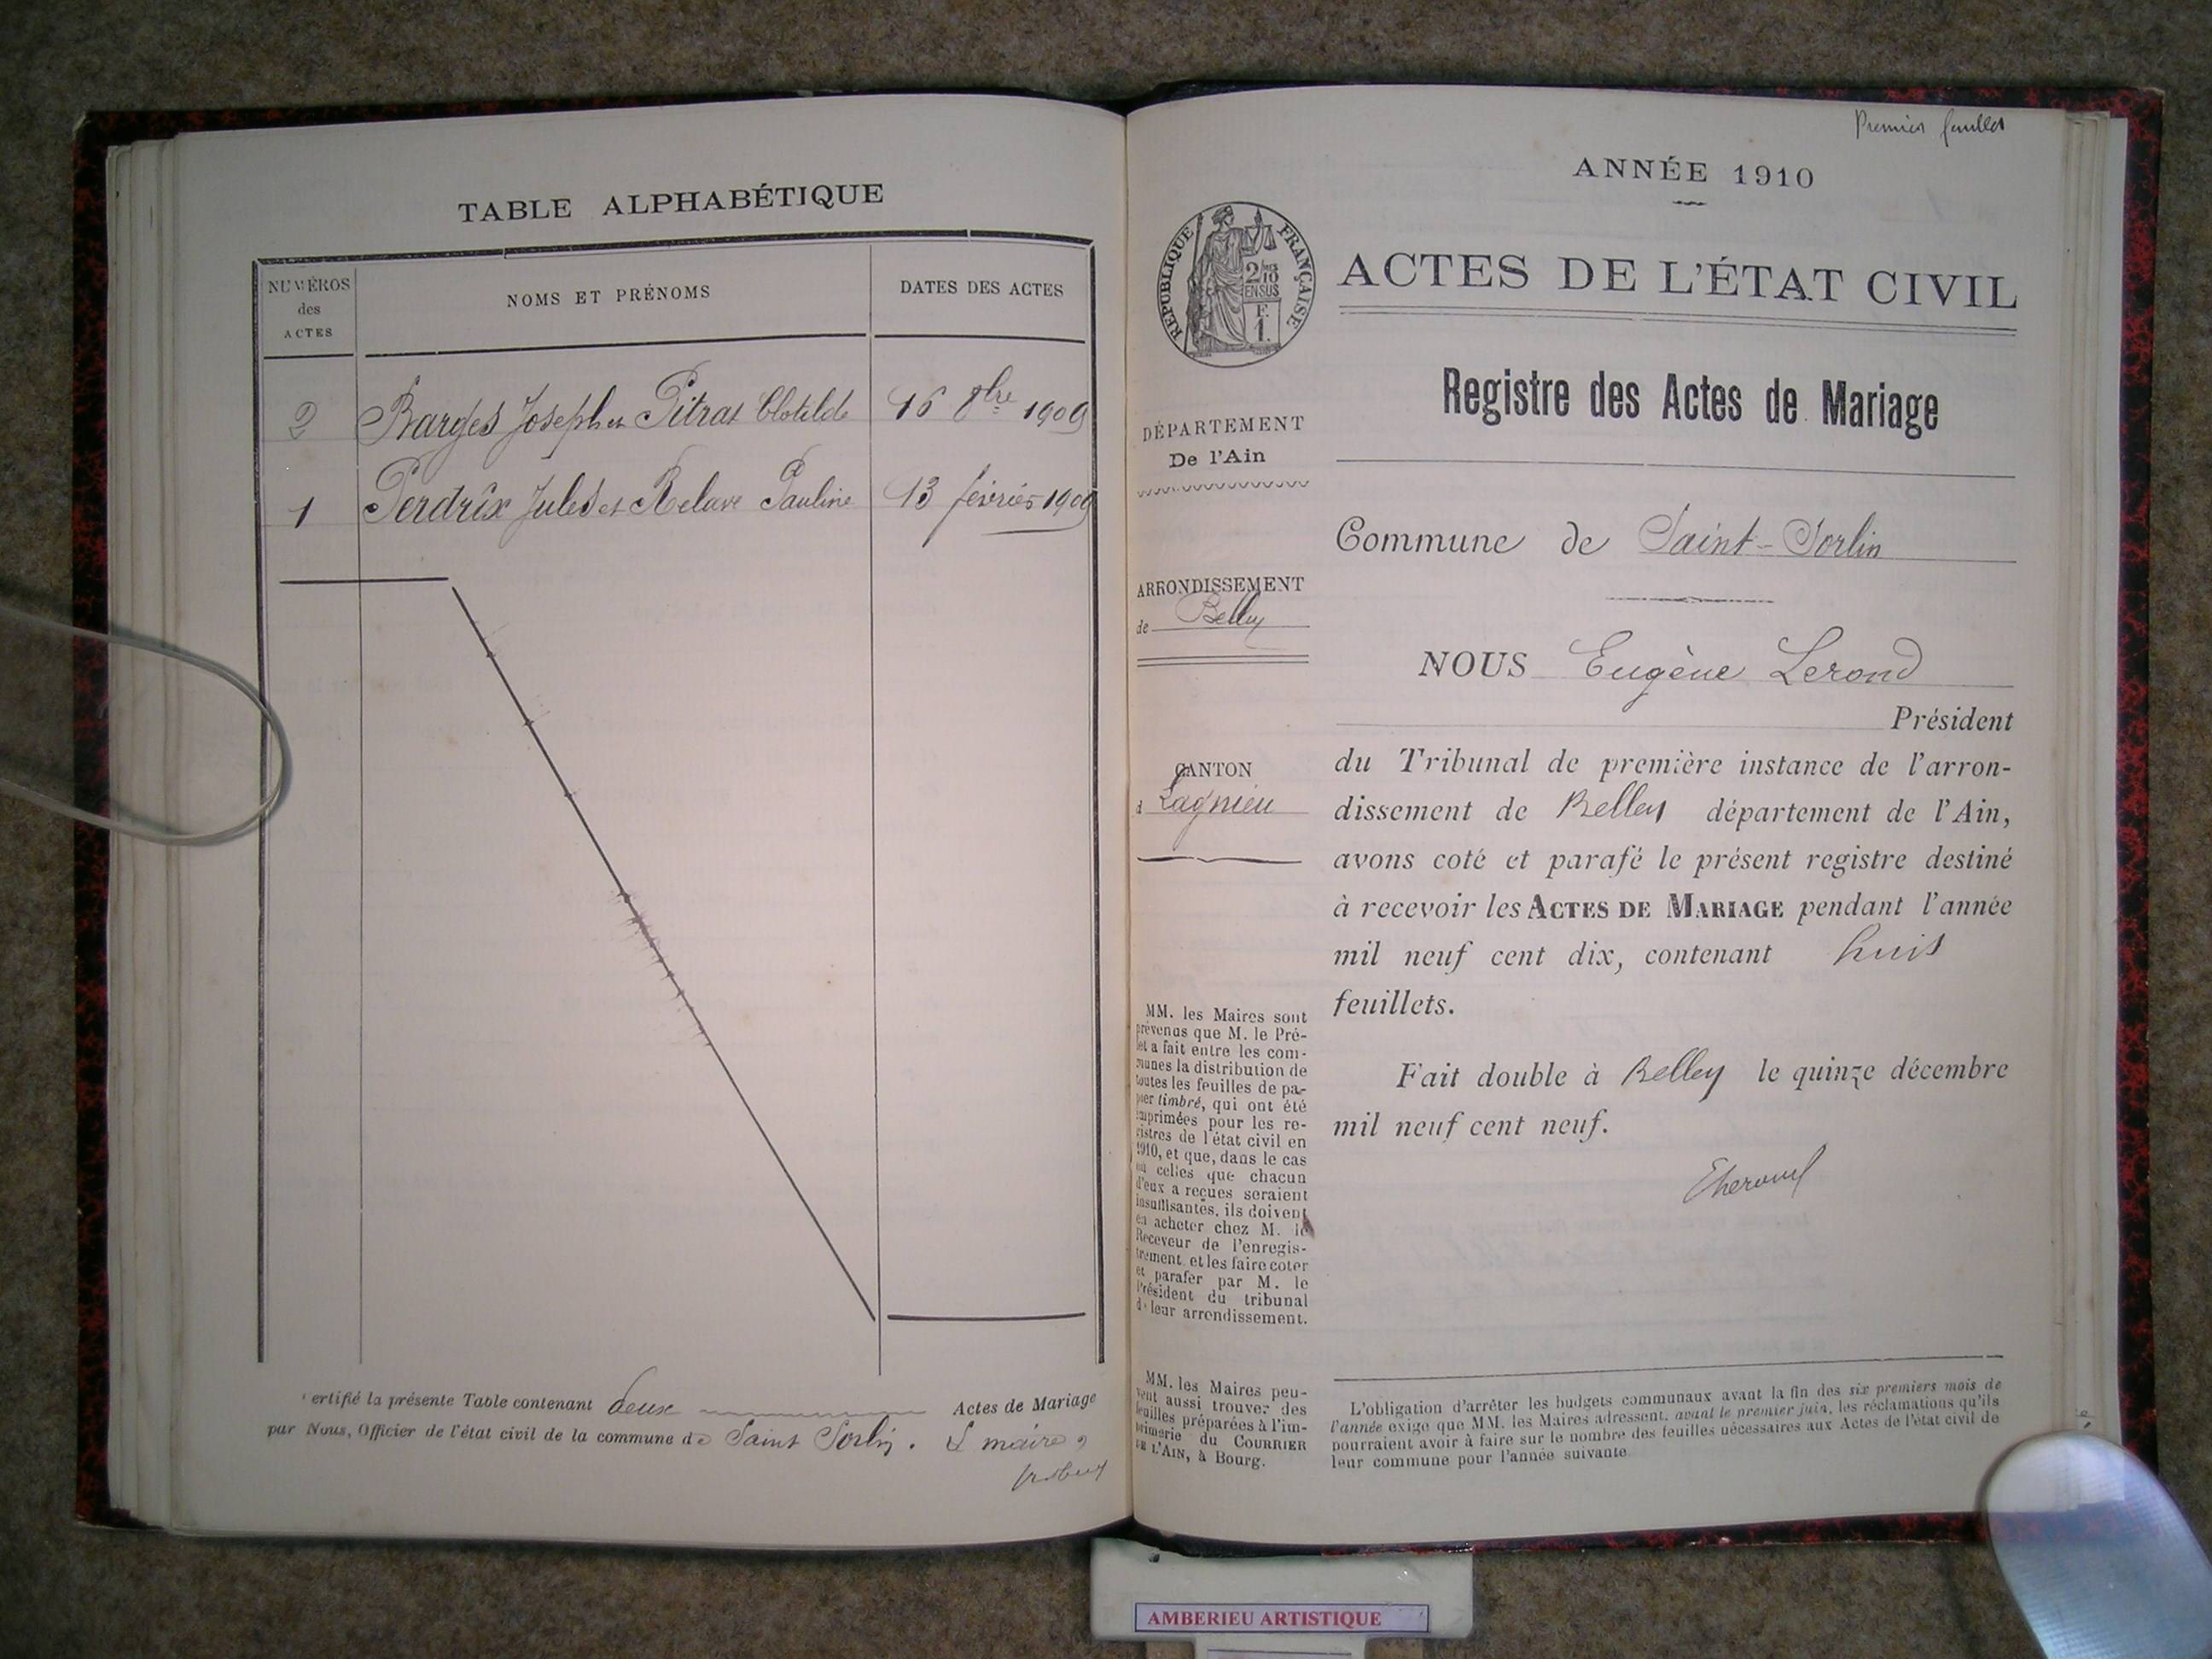 TABLE ALPHABÉTIQUE
NUMÉROS
des
ACTES
NOMS ET PRÉNOMS
DATES DES ACTES
2 Barges Joseph et Pitrat Clotilde 16 8bre 1909
1 Perdrix Jules et Relave Pauline 13 février 1909
ertifié la présente Table contenant deux Actes de Mariage
par Nous, Officier de l'état civil de la commune de Saint Sorlin. L maire,
Premier feuillet
ANNÉE 1910
RÉPUBLIQUE FRANÇAISE
2/10
EN SUS
F.
1.
ACTES DE L'ÉTAT CIVIL
Registre des Actes de Mariage
DÉPARTEMENT
De l'Ain
ARRONDISSEMENT
de Belley
CANTON
d Lagnieu
MM. les Maires sont
prévenus que M. le Pré-
fet a fait entre les com-
munes la distribution de
toutes les feuilles de pa-
pier timbré, qui ont été
imprimées pour les re-
gistres de l'état civil en
1910, et que, dans le cas
où celles que chacun
d'eux a reçues seraient
insuffisantes, ils doivent
en acheter chez M. le
Receveur de l'enregis-
trement et les faire coter
et parafer par M. le
Président du tribunal
de leur arrondissement.
MM. les Maires peu-
vent aussi trouver des
feuilles préparées à l'im-
primerie du COURRIER
DE L'AIN, à Bourg.
Commune de Saint-Sorlin
NOUS Eugène Lerond
Président
du Tribunal de première instance de l'arron-
dissement de Belley département de l'Ain,
avons coté et parafé le présent registre destiné
à recevoir les ACTES DE MARIAGE pendant l'année
mil neuf cent dix, contenant huit
feuillets.
Fait double à Belley le quinze décembre
mil neuf cent neuf.
L'obligation d'arrêter les budgets communaux avant la fin des six premiers mois de
l'année exige que MM. les Maires adressent, avant le premier juin, les réclamations qu'ils
pourraient avoir à faire sur le nombre des feuilles nécessaires aux Actes de l'état civil de
leur commune pour l'année suivante.
AMBERIEU ARTISTIQUE